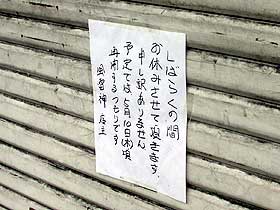 しばらくの間
お休みさせて頂きます。
申し訳ありません
予定では5月10日(木)頃
再開するつもりです
店主